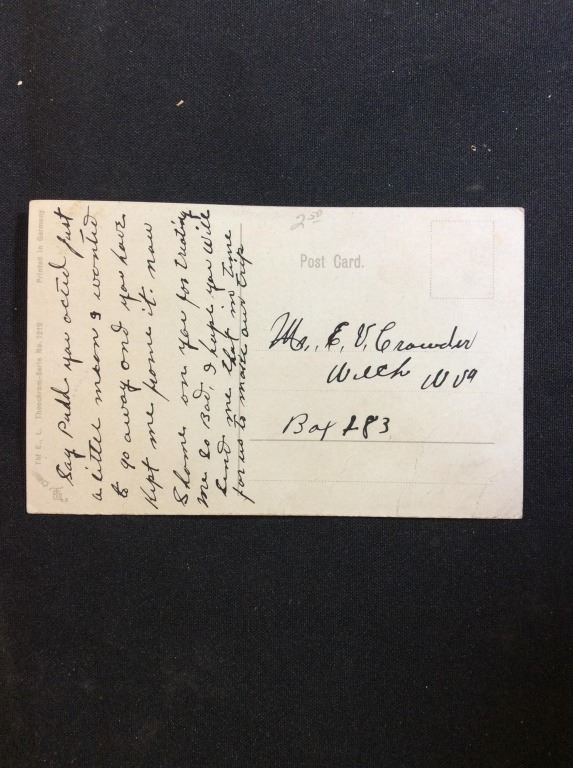 TM E., L. Theochrom-Serie No. 1219 Printed in Germany
Say Pudd you acted just
a little mean I wonted
to go away and you have
kept me frome it. now
Shame on you for treating
me so Bad, I hope you will
send me that in time
for us to make our trip
2 50
Post Card.
Mr. E. V. Crowder
Welch W Va
Box 283